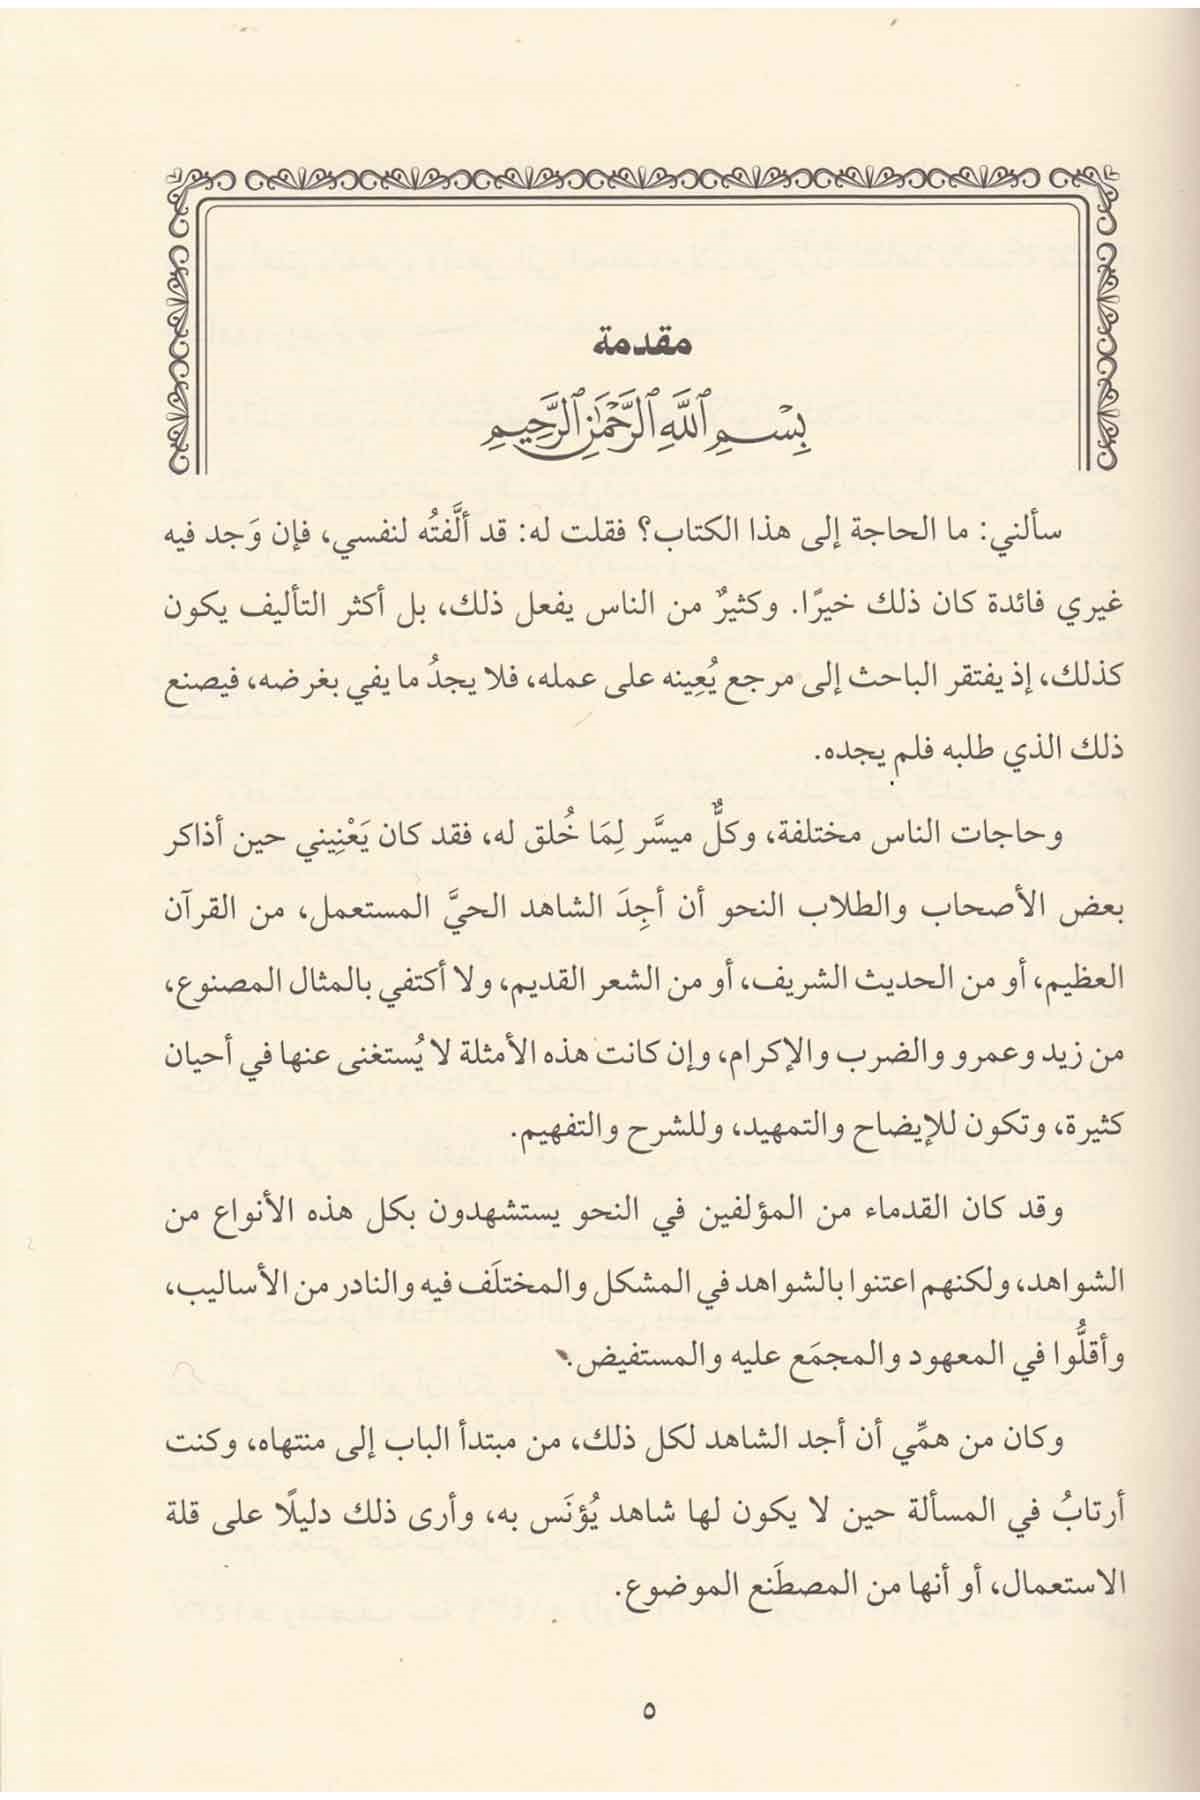 مقدمة
بِسْمِ ٱللَّهِ ٱلرَّحْمَٰنِ ٱلرَّحِيمِ
سألني: ما الحاجة إلى هذا الكتاب؟ فقلت له: قد ألَّفتُه لنفسي، فإن وَجد فيه
غيري فائدة كان ذلك خيرًا. وكثيرٌ من الناس يفعل ذلك، بل أكثر التأليف يكون
كذلك، إذ يفتقر الباحث إلى مرجع يُعِينه على عمله، فلا يجدُ ما يفي بغرضه، فيصنع
ذلك الذي طلبه فلم يجده.
وحاجات الناس مختلفة، وكلٌّ ميسَّر لِمَا خُلق له، فقد كان يَعْنِيني حين أذاكر
بعض الأصحاب والطلاب النحو أن أجِدَ الشاهد الحيَّ المستعمل، من القرآن
العظيم، أو من الحديث الشريف، أو من الشعر القديم، ولا أكتفي بالمثال المصنوع،
من زيد وعمرو والضرب والإكرام، وإن كانت هذه الأمثلة لا يُستغنى عنها في أحيان
كثيرة، وتكون للإيضاح والتمهيد، وللشرح والتفهيم.
وقد كان القدماء من المؤلفين في النحو يستشهدون بكل هذه الأنواع من
الشواهد، ولكنهم اعتنوا بالشواهد في المشكل والمختلَف فيه والنادر من الأساليب،
وأقلُّوا في المعهود والمجمَع عليه والمستفيض.
وكان من همِّي أن أجد الشاهد لكل ذلك، من مبتدأ الباب إلى منتهاه، وكنت
أرتابُ في المسألة حين لا يكون لها شاهد يُؤنَس به، وأرى ذلك دليلًا على قلة
الاستعمال، أو أنها من المصطَنع الموضوع.
٥